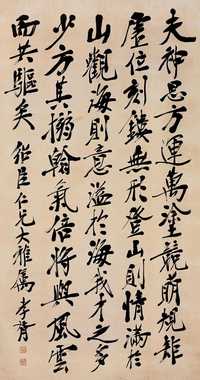 夫神思方運萬塗競萌規矩
虛位刻鏤無形登山則情滿於
山觀海則意溢於海我才之多
少方其搦翰氣倍將與風雲
而共驅矣 紹臣仁兄大雅屬 李𣿰